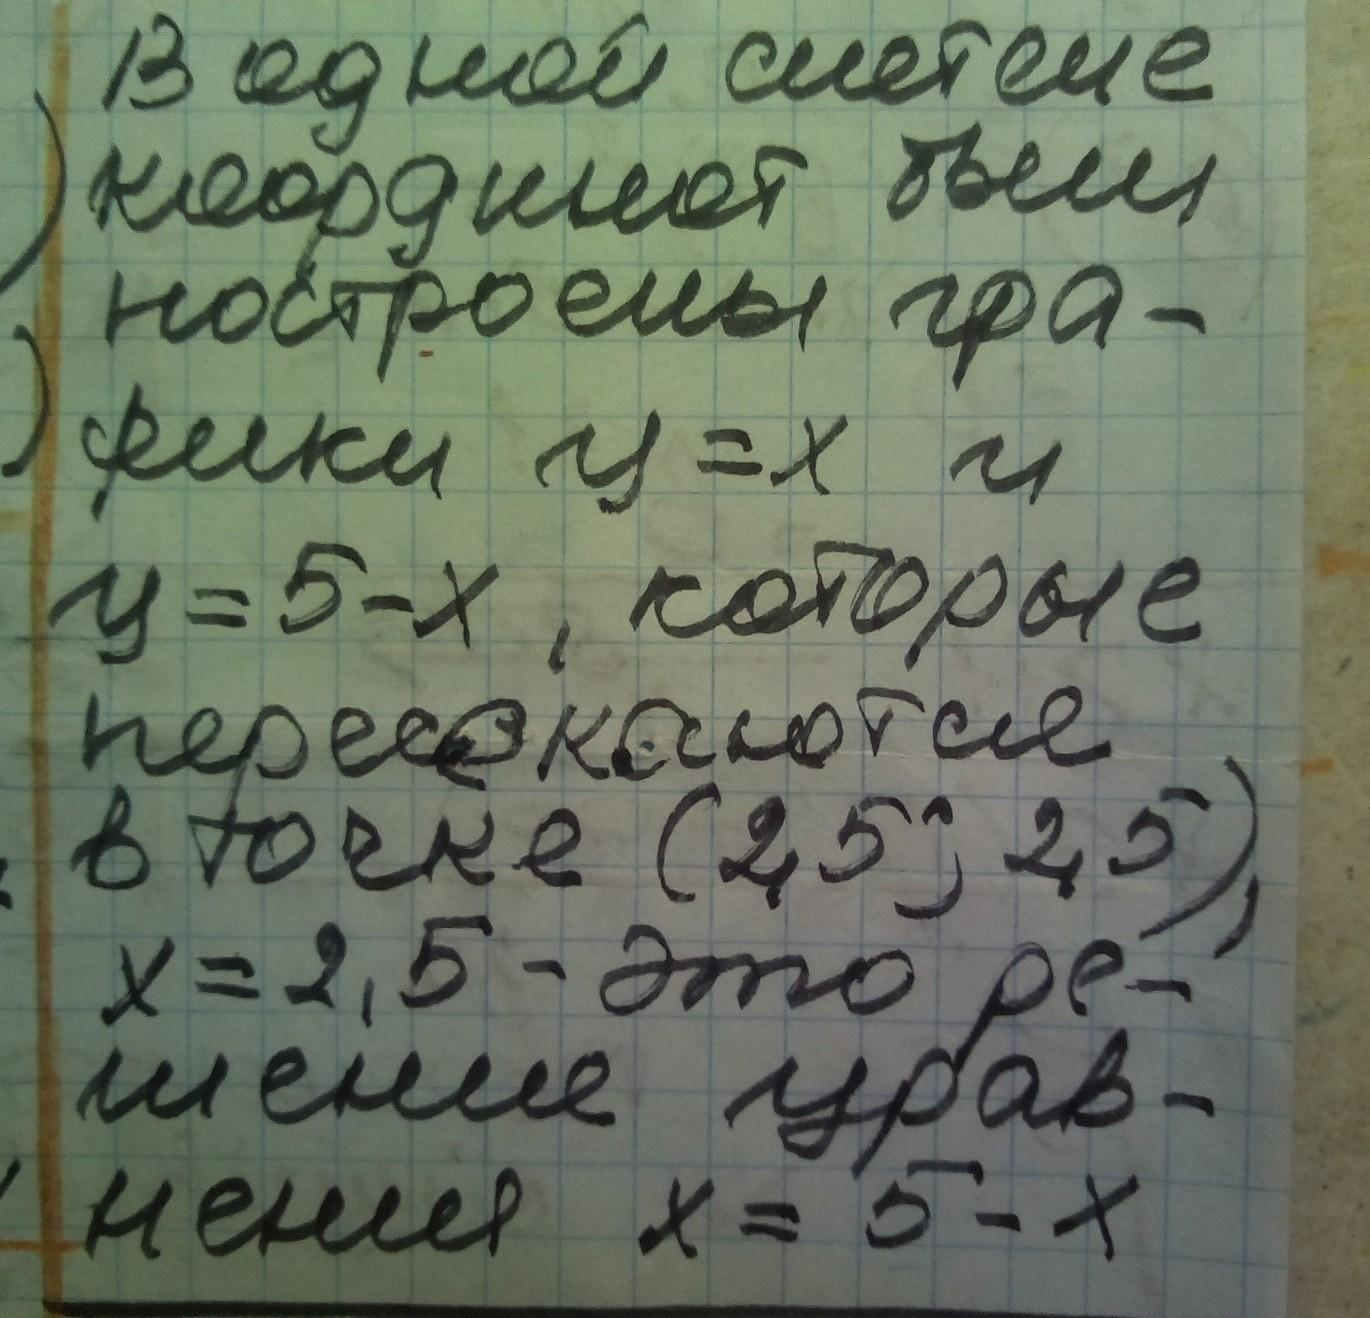 В одной системе
координат были
построены гра-
фики у = х и
у = 5 - х, которые
пересекаются
в точке (2,5; 2,5),
х = 2,5 - это ре-
шение урав-
нения х = 5 - х